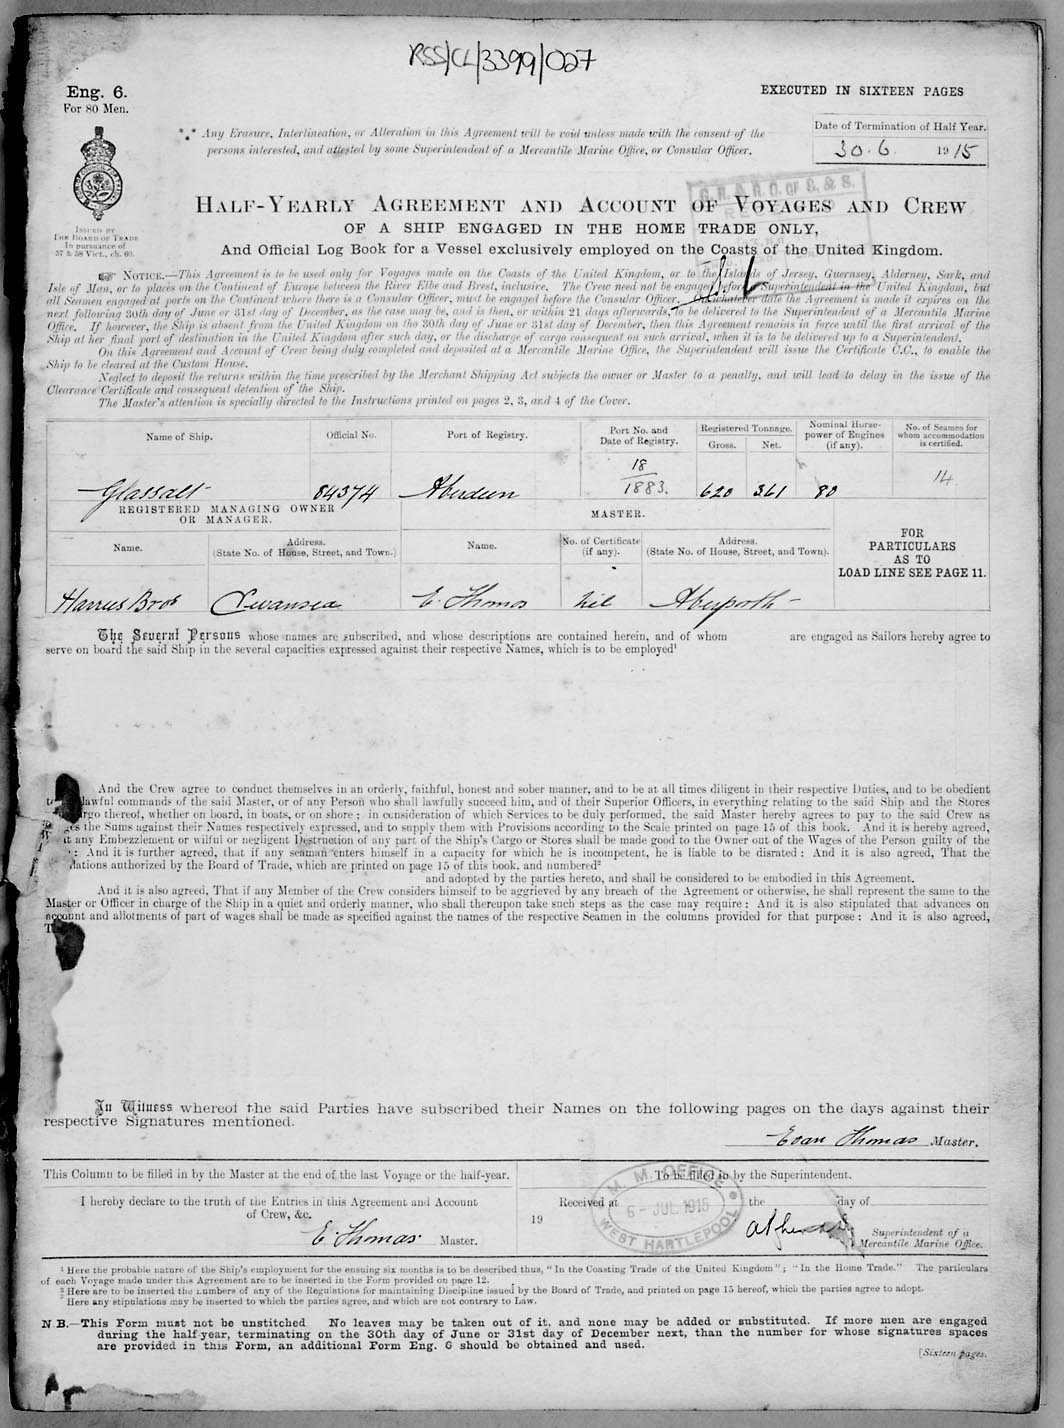 RSS/CL/3399/027
Eng. 6.
For 80 Men.
EXECUTED IN SIXTEEN PAGES
Any Erasure, Interlineation, or Alteration in this Agreement will be void unless made with the consent of the
persons interested, and attested by some Superintendent of a Mercantile Marine Office, or Consular Officer.
Date of Termination of Half Year.
30.6. 1915
ISSUED BY
THE BOARD OF TRADE
In pursuance of
57 & 58 Vict., ch. 60.
HALF-YEARLY AGREEMENT AND ACCOUNT OF VOYAGES AND CREW
OF A SHIP ENGAGED IN THE HOME TRADE ONLY,
And Official Log Book for a Vessel exclusively employed on the Coasts of the United Kingdom.
NOTICE.—This Agreement is to be used only for Voyages made on the Coasts of the United Kingdom, or to the Islands of Jersey, Guernsey, Alderney, Sark, and
Isle of Man, or to places on the Continent of Europe between the River Elbe and Brest, inclusive. The Crew need not be engaged before a Superintendent in the United Kingdom, but
all Seamen engaged at ports on the Continent where there is a Consular Officer, must be engaged before the Consular Officer. On whatever date the Agreement is made it expires on the
next following 30th day of June or 31st day of December, as the case may be, and is then, or within 21 days afterwards, to be delivered to the Superintendent of a Mercantile Marine
Office. If however, the Ship is absent from the United Kingdom on the 30th day of June or 31st day of December, then this Agreement remains in force until the first arrival of the
Ship at her final port of destination in the United Kingdom after such day, or the discharge of cargo consequent on such arrival, when it is to be delivered up to a Superintendent.
On this Agreement and Account of Crew being duly completed and deposited at a Mercantile Marine Office, the Superintendent will issue the Certificate C.C., to enable the
Ship to be cleared at the Custom House.
Neglect to deposit the returns within the time prescribed by the Merchant Shipping Act subjects the owner or Master to a penalty, and will lead to delay in the issue of the
Clearance Certificate and consequent detention of the Ship.
The Master's attention is specially directed to the Instructions printed on pages 2, 3, and 4 of the Cover.
Name of Ship. Official No. Port of Registry. Port No. and Date of Registry. Registered Tonnage. Gross. Net. Nominal Horse-power of Engines (if any). No. of Seamen for whom accommodation is certified.
Glassalt 84374 Aberdeen 18/1883. 620 361 80 14
REGISTERED MANAGING OWNER
OR MANAGER.
MASTER.
Name. Address. (State No. of House, Street, and Town.) Name. No. of Certificate (if any). Address. (State No. of House, Street, and Town).
FOR
PARTICULARS
AS TO
LOAD LINE SEE PAGE 11.
Harries Bros Swansea E Thomas Nil Aberporth
The Several Persons whose names are subscribed, and whose descriptions are contained herein, and of whom are engaged as Sailors hereby agree to
serve on board the said Ship in the several capacities expressed against their respective Names, which is to be employed¹
And the Crew agree to conduct themselves in an orderly, faithful, honest and sober manner, and to be at all times diligent in their respective Duties, and to be obedient
lawful commands of the said Master, or of any Person who shall lawfully succeed him, and of their Superior Officers, in everything relating to the said Ship and the Stores
argo thereof, whether on board, in boats, or on shore; in consideration of which Services to be duly performed, the said Master hereby agrees to pay to the said Crew as
the Sums against their Names respectively expressed, and to supply them with Provisions according to the Scale printed on page 15 of this book. And it is hereby agreed,
t any Embezzlement or wilful or negligent Destruction of any part of the Ship's Cargo or Stores shall be made good to the Owner out of the Wages of the Person guilty of the
: And it is further agreed, that if any seaman enters himself in a capacity for which he is incompetent, he is liable to be disrated: And it is also agreed, That the
lations authorized by the Board of Trade, which are printed on page 15 of this book. and numbered²
and adopted by the parties hereto, and shall be considered to be embodied in this Agreement.
And it is also agreed, That if any Member of the Crew considers himself to be aggrieved by any breach of the Agreement or otherwise, he shall represent the same to the
Master or Officer in charge of the Ship in a quiet and orderly manner, who shall thereupon take such steps as the case may require: And it is also stipulated that advances on
account and allotments of part of wages shall be made as specified against the names of the respective Seamen in the columns provided for that purpose: And it is also agreed,
In Witness whereof the said Parties have subscribed their Names on the following pages on the days against their
respective Signatures mentioned.
Evan Thomas Master.
This Column to be filled in by the Master at the end of the last Voyage or the half-year.
To be filled in by the Superintendent.
I hereby declare to the truth of the Entries in this Agreement and Account
of Crew, &c.
E Thomas Master.
Received at the day of
19
M. M. OFFICE
6 - JUL 1915
WEST HARTLEPOOL
Superintendent of a
Mercantile Marine Office.
¹ Here the probable nature of the Ship's employment for the ensuing six months is to be described thus, "In the Coasting Trade of the United Kingdom"; "In the Home Trade." The particulars
of each Voyage made under this Agreement are to be inserted in the Form provided on page 12.
² Here are to be inserted the numbers of any of the Regulations for maintaining Discipline issued by the Board of Trade, and printed on page 15 hereof, which the parties agree to adopt.
³ Here any stipulations may be inserted to which the parties agree, and which are not contrary to Law.
N.B.—This Form must not be unstitched No leaves may be taken out of it, and none may be added or substituted. If more men are engaged
during the half-year, terminating on the 30th day of June or 31st day of December next, than the number for whose signatures spaces
are provided in this Form, an additional Form Eng. 6 should be obtained and used.
[Sixteen pages.